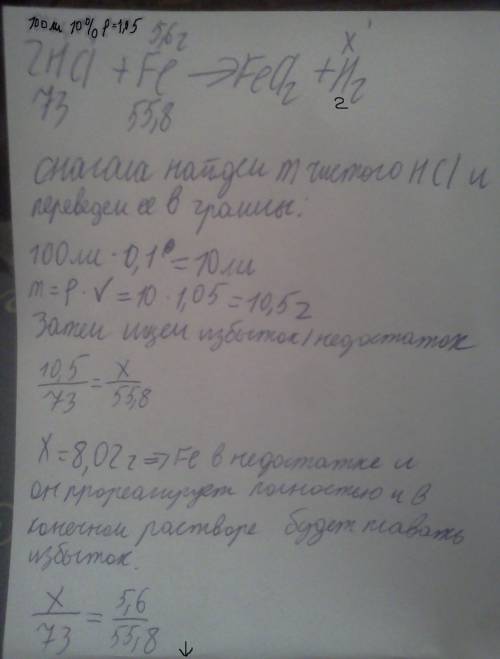 100мл 10% ρ=1,05
5,6г x
2HCl + Fe → FeCl₂ + H₂
73 55,8 2
сначала найдем m чистого HCl и
переведем ее в граммы:
100мл · 0,1 = 10мл
m = ρ · V = 10 · 1,05 = 10,5г
Затем ищем избыток/недостаток
10,5/73 = x/55,8
x = 8,02г ⇒ Fe в недостатке и
он прореагирует полностью и в
конечном растворе будет плавать
избыток.
x/73 = 5,6/55,8
↓